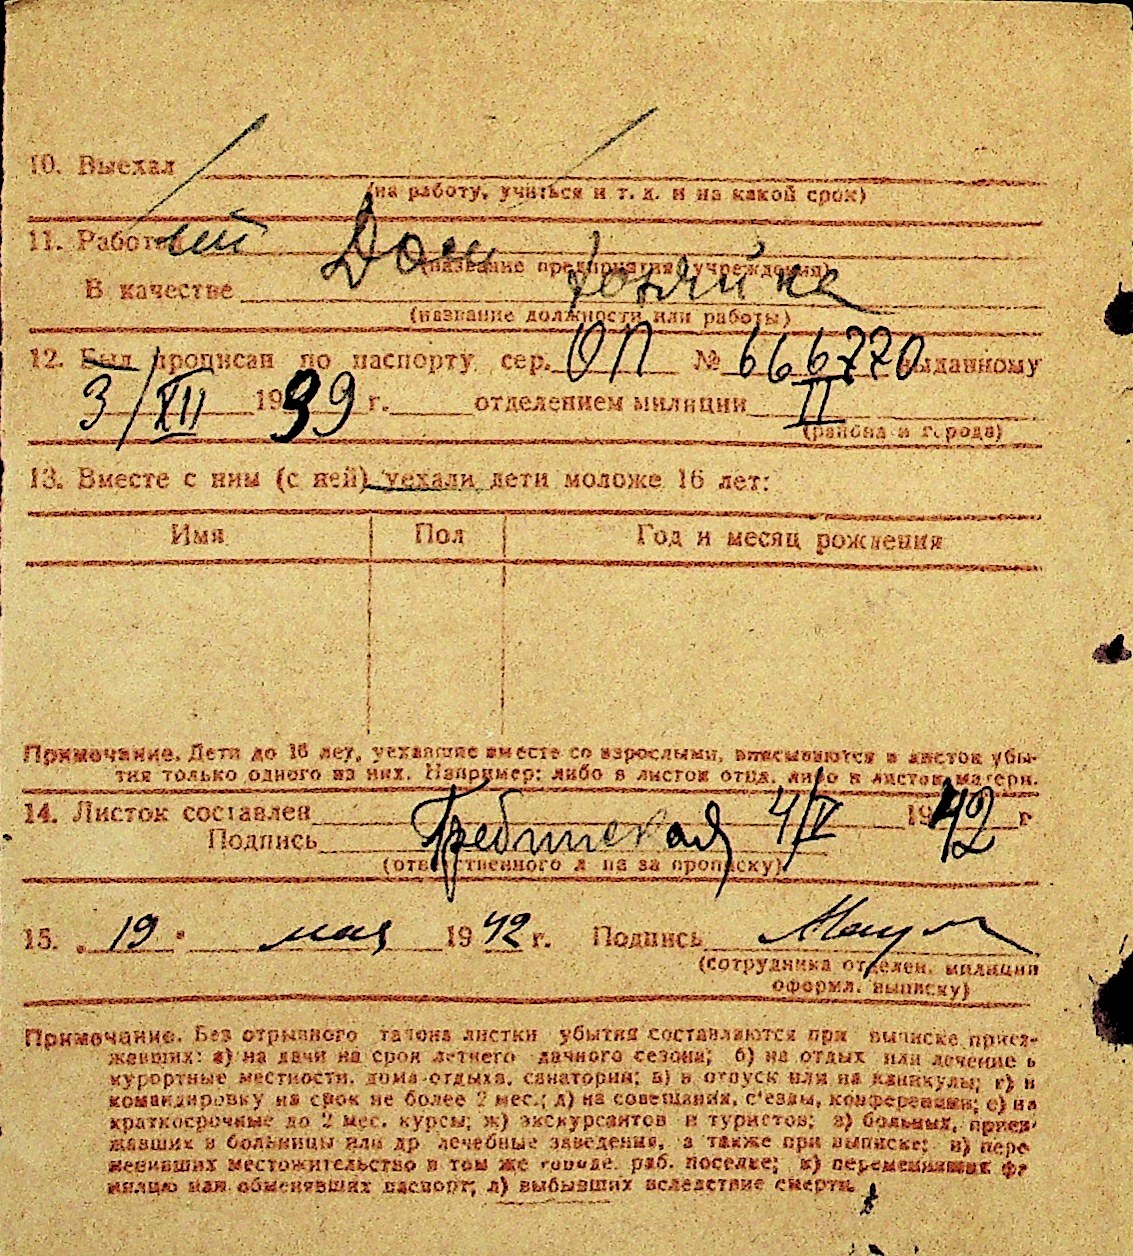 10. Выехал
(на работу, учиться и т. д. и на какой срок)
11. Работал Дом хозяйка
(название предприятия, учреждения)
В качестве
(название должности или работы)
12. Был прописан по паспорту сер. ОП № 666770 выданному
3/XII 1939 г. отделением милиции II
(района и города)
13. Вместе с ним (с ней) уехали дети моложе 16 лет:
Имя Пол Год и месяц рождения
Примечание. Дети до 16 лет, уехавшие вместе со взрослыми, вписываются в листок убы-
тия только одного из них. Например: либо в листок отца, либо в листок матери.
14. Листок составлен 4/V 1942 г
Подпись
(ответственного л па за прописку)
15. „19" мая 1942 г. Подпись
(сотрудника отделен. милиции
оформл. выписку)
Примечание. Без отрывного талона листки убытия составляются при выписке приез-
жавших: а) на дачи на срок летнего дачного сезона; б) на отдых или лечение в
курортные местности, дома отдыха, санатории; в) в отпуск или на каникулы; г) в
командировку на срок не более 2 мес.; д) на совещания, с'езды, конференции; е) на
краткосрочные до 2 мес. курсы; ж) экскурсантов и туристов; з) больных, приез-
жавших в больницы или др лечебные заведения, а также при выписке; и) пере
менивших местожительство в том же городе, раб. поселке; к) переменивших фа
милию или обменявших паспорт; л) выбывших вследствие смерти.